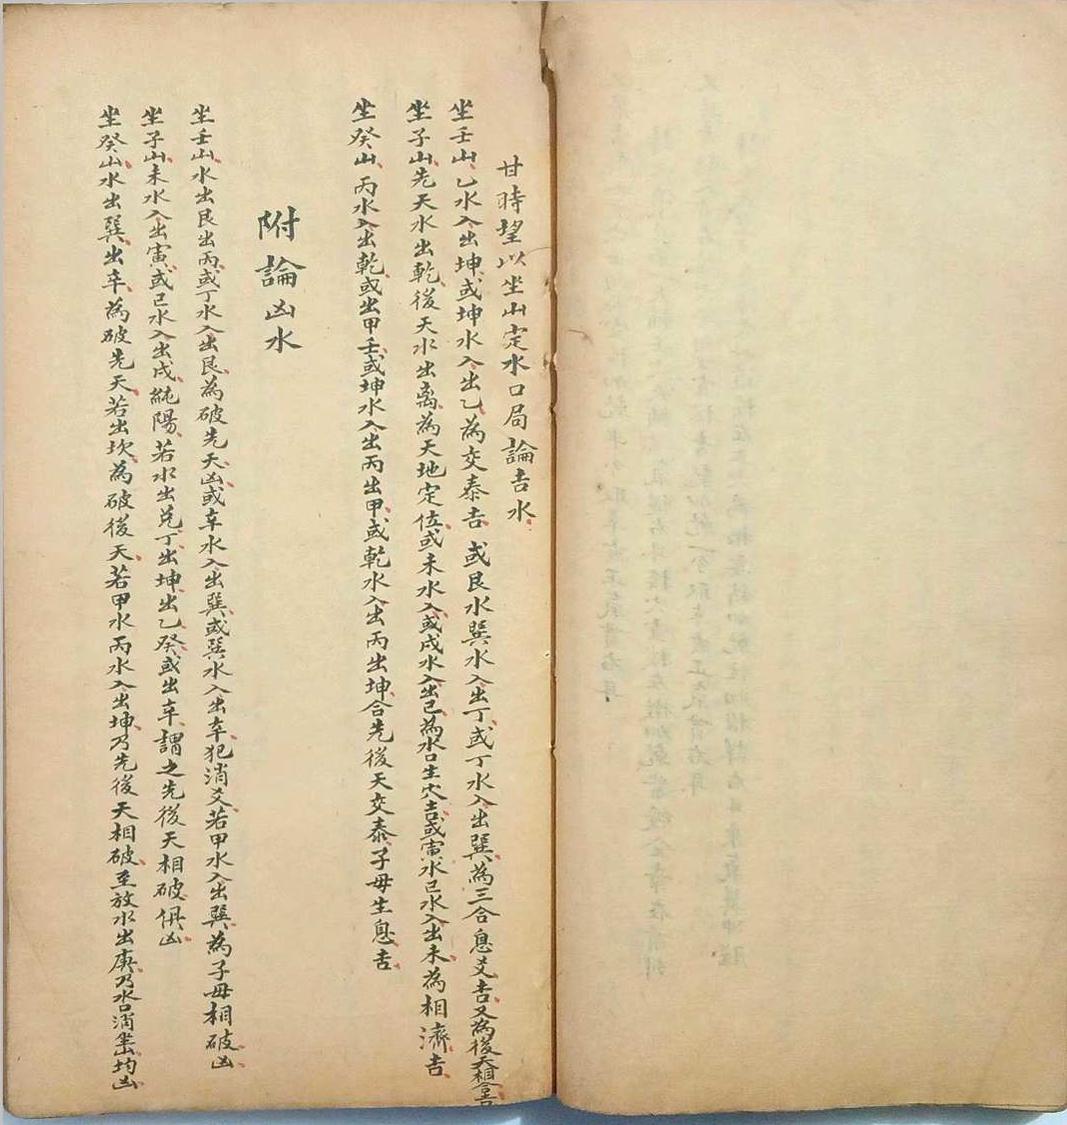 甘時望以坐山定水口局論吉水
坐壬山乙水入出坤或坤水入出乙為交泰吉或艮水巽水入出丁或丁水入出巽為三合息爻吉又為後天相合吉
坐子山先天水出乾後天水出离為天地定位或未水入或戌水入出巳為水口生穴吉或寅水巳水入出未為相濟吉
坐癸山丙水入出乾或出甲壬或坤水入出丙出甲或乾水入出丙出坤合先後天交泰子母生息吉
附論凶水
坐壬山水出艮出丙或丁水入出艮為破先天凶或辛水入出巽或巽水入出辛犯消爻若甲水入出巽為子母相破凶
坐子山未水入出寅或巳水入出戌純陽若水出兌丁出坤出乙癸或出辛謂之先後天相破俱凶
坐癸山水出巽出辛為破先天若出坎為破後天若甲水丙水入出坤乃先後天相破至放水出庚乃水口消坐山均凶